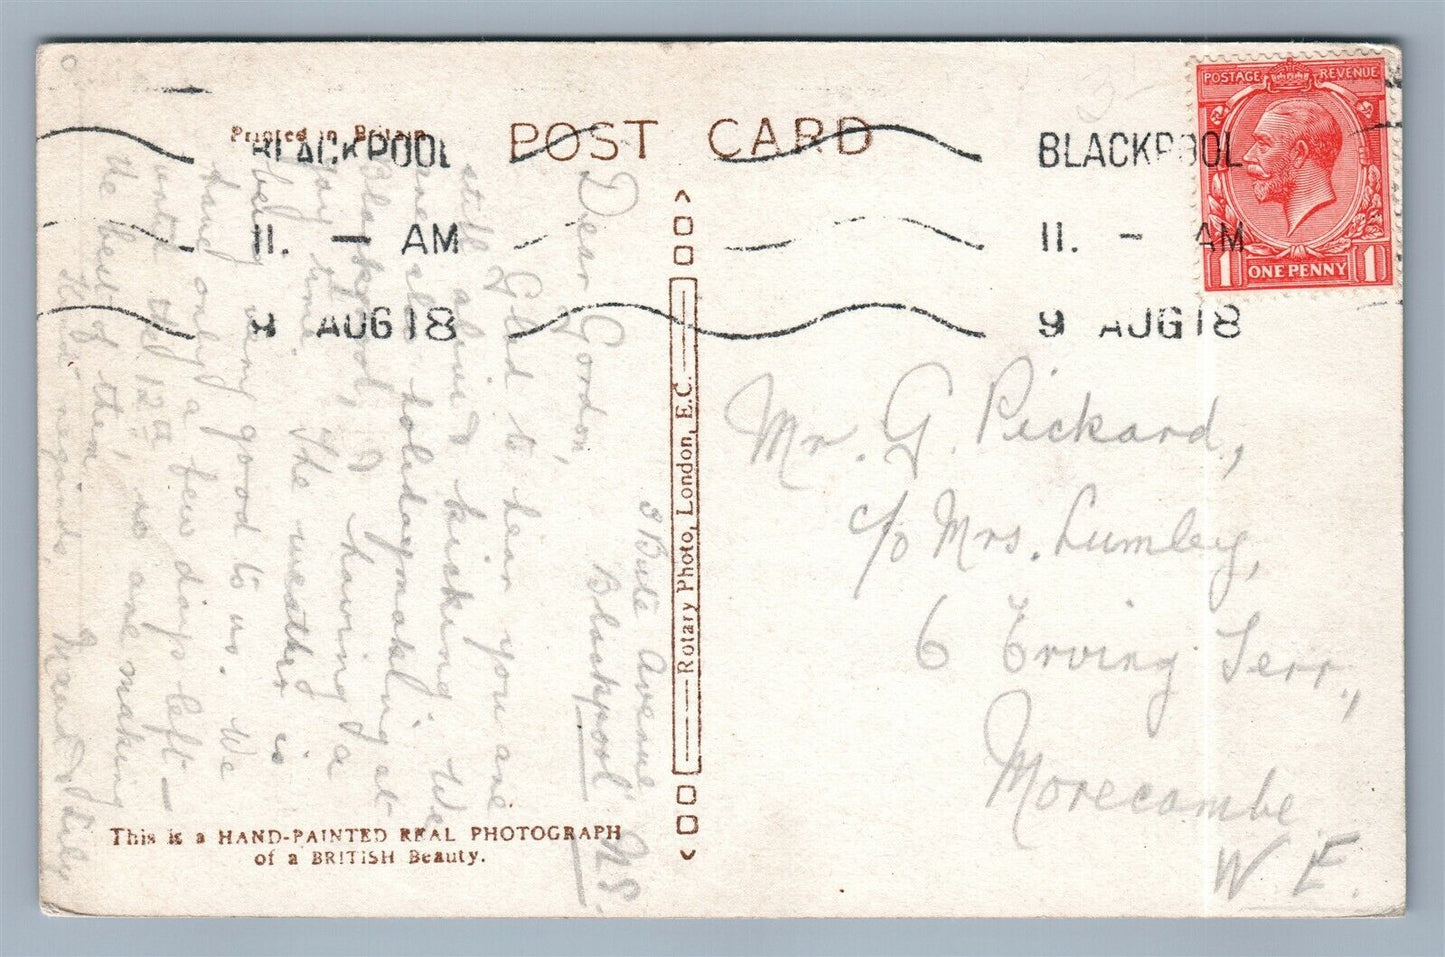 Printed in Britain
POST CARD
POSTAGE REVENUE
1 ONE PENNY 1
BLACKPOOL
11. — AM
9 AUG 18
BLACKPOOL
11. - AM
9 AUG 18
3 Bute Avenue
Blackpool N.S.
Dear Gordon,
Glad to hear you are
still alive & kicking. We
are also holidaymaking at
Blackpool, & having a
time. The weather is
being very good to us. We
have only a few days left —
until the 12th, so are making
the best of them.
Kind regards,
Mr. G. Pickard,
c/o Mrs. Lumley,
6 Erving Terr.,
Morecambe
W. E.
Rotary Photo, London, E.C.
This is a HAND-PAINTED REAL PHOTOGRAPH
of a BRITISH Beauty.